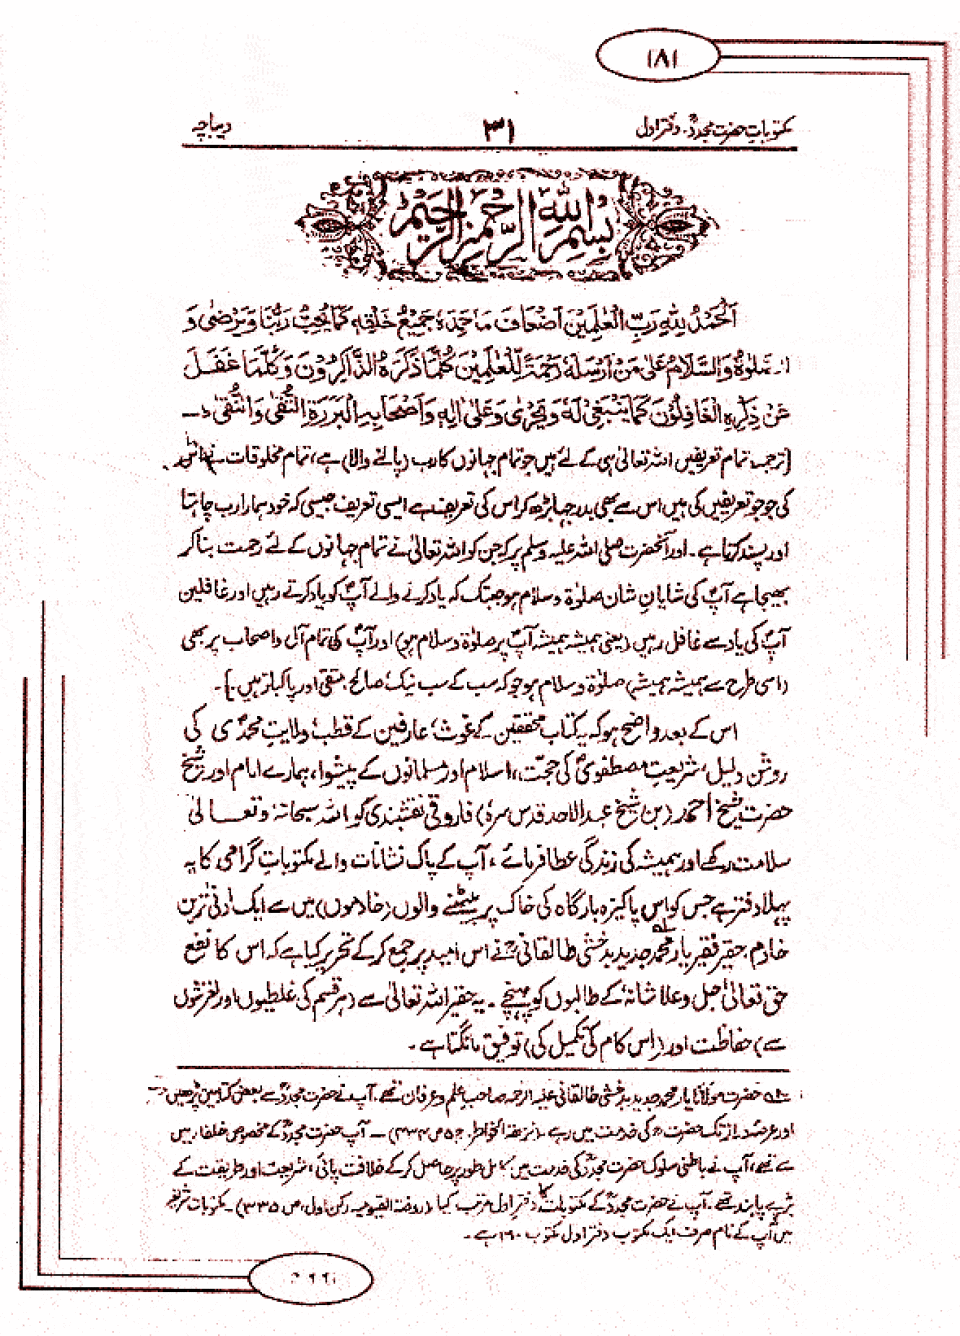 ۱۸۱
مکتوبات حضرت مجددؒ۔ دفتر اول ۳۱ دیباچہ
بِسْمِ اللهِ الرَّحْمٰنِ الرَّحِيْمِ
اَلْحَمْدُ لِلّٰهِ رَبِّ الْعٰلَمِيْنَ اَضْعَافَ مَا حَمِدَهٗ جَمِيْعُ خَلْقِهٖ كَمَا يُحِبُّ رَبُّنَا وَيَرْضٰى وَ
الصَّلٰوةُ وَالسَّلَامُ عَلٰى مَنْ اَرْسَلَهٗ رَحْمَةً لِّلْعٰلَمِيْنَ كُلَّمَا ذَكَرَهُ الذَّاكِرُوْنَ وَكُلَّمَا غَفَلَ
عَنْ ذِكْرِهِ الْغَافِلُوْنَ كَمَا يَنْبَغِىْ لَهٗ وَيَحْرٰى وَعَلٰى اٰلِهٖ وَاَصْحَابِهِ الْبَرَرَةِ التُّقٰى وَالنُّقٰى۔
[ترجمہ تمام تعریفیں اللہ تعالیٰ ہی کے لئے ہیں جو تمام جہانوں کا رب (پالنے والا) ہے، تمام مخلوقات نے اس
کی جو جو تعریفیں کی ہیں اس سے بھی بدرجہا بڑھ کر اس کی تعریف ہے ایسی تعریف جیسی کہ خود ہمارا رب چاہتا
اور پسند کرتا ہے۔ اور آنحضرت صلی اللہ علیہ وسلم پر کہ جن کو اللہ تعالیٰ نے تمام جہانوں کے لئے رحمت بنا کر
بھیجا ہے آپؐ کی شایانِ شان صلوٰۃ و سلام ہو جبتک کہ یاد کرنے والے آپؐ کو یاد کرتے رہیں اور غافلین
آپؐ کی یاد سے غافل رہیں (یعنی ہمیشہ ہمیشہ آپؐ پر صلوٰۃ و سلام ہو) اور آپؐ کی تمام آل و اصحاب پر بھی
(اسی طرح سے ہمیشہ ہمیشہ) صلوٰۃ و سلام ہو جو کہ سب کے سب نیک، صالح، متقی اور پاکباز ہیں۔]۔
اس کے بعد واضح ہو کہ یہ کتاب محققین کے غوث، عارفین کے قطب، ولایتِ محمدیؐ کی
روشن دلیل، شریعتِ مصطفویؐ کی حجت، اسلام اور مسلمانوں کے پیشوا، ہمارے امام اور شیخ
حضرت شیخ احمد (بن شیخ عبدالاحد قدس سرہ) فاروقی نقشبندی کو اللہ سبحانہٗ و تعالیٰ
سلامت رکھے اور ہمیشہ کی زندگی عطا فرمائے، آپ کے پاک نشانات والے مکتوباتِ گرامی کا یہ
پہلا دفتر ہے جس کو اس پاکیزہ بارگاہ کی خاک پر بیٹھنے والوں (خادموں) میں سے ایک ادنیٰ ترین
خادم، حقیر فقیر یار محمد جدید بدخشی طالقانیؒ نے اس امید پر جمع کر کے تحریر کیا ہے کہ اس کا نفع
حق تعالیٰ اجل و علا شانہٗ کے طالبوں کو پہنچے۔ یہ حقیر اللہ تعالیٰ سے (ہر قسم کی غلطیوں اور لغزشوں
سے) حفاظت اور (اس کام کی تکمیل کی) توفیق مانگتا ہے۔
حضرت مولانا یار محمد جدید بدخشی طالقانی علیہ الرحمہ صاحب علم و عرفان تھے، آپ نے حضرت مجددؒ سے بعض کتابیں پڑھیں
اور عرصہ دراز تک حضرتؒ کی خدمت میں رہے۔ (نزہۃ الخواطر، ج ۵ ص ۴۳۴)۔ آپ حضرت مجددؒ کے مخصوص خلفاء میں
سے تھے، آپ نے باطنی سلوک حضرت مجددؒ کی خدمت میں کامل طور پر حاصل کر کے خلافت پائی، شریعت اور طریقت کے
بڑے پابند تھے۔ آپ نے حضرت مجددؒ کے مکتوبات کا دفتر اول مرتب کیا (روضۃ القیومیہ رکن اول، ص ۳۳۵)۔ مکتوبات شریفہ
میں آپ کے نام صرف ایک مکتوب دفتر اول مکتوب ۱۶۰ ہے۔